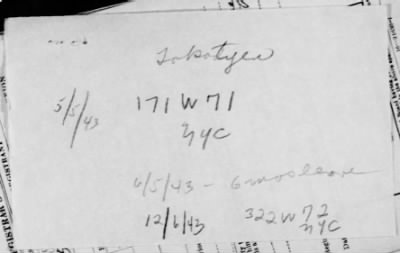 5/5/43 171 W 71
NYC
6/5/43 - 6 mos leave
12/6/43 322 W 72
NYC
REGISTRAR